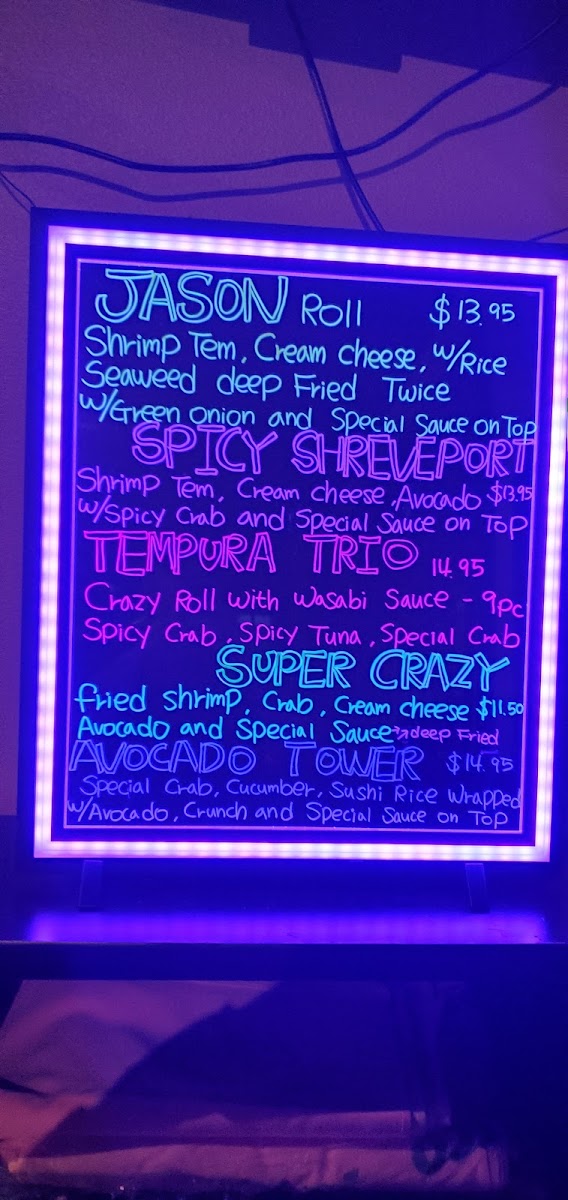 JASON Roll $13.95
Shrimp Tem, Cream cheese, w/Rice
Seaweed deep Fried Twice
w/Green onion and Special Sauce on Top
SPICY SHREVEPORT
Shrimp Tem, Cream cheese, Avocado $13.95
w/Spicy Crab and Special Sauce on Top
TEMPURA TRIO 14.95
Crazy Roll with Wasabi Sauce - 9pc
Spicy Crab, Spicy Tuna, Special Crab
SUPER CRAZY
fried shrimp, Crab, Cream cheese $11.50
Avocado and Special Sauce deep Fried
AVOCADO TOWER $14.95
Special Crab, Cucumber, Sushi Rice Wrapped
w/Avocado, Crunch and Special Sauce on Top